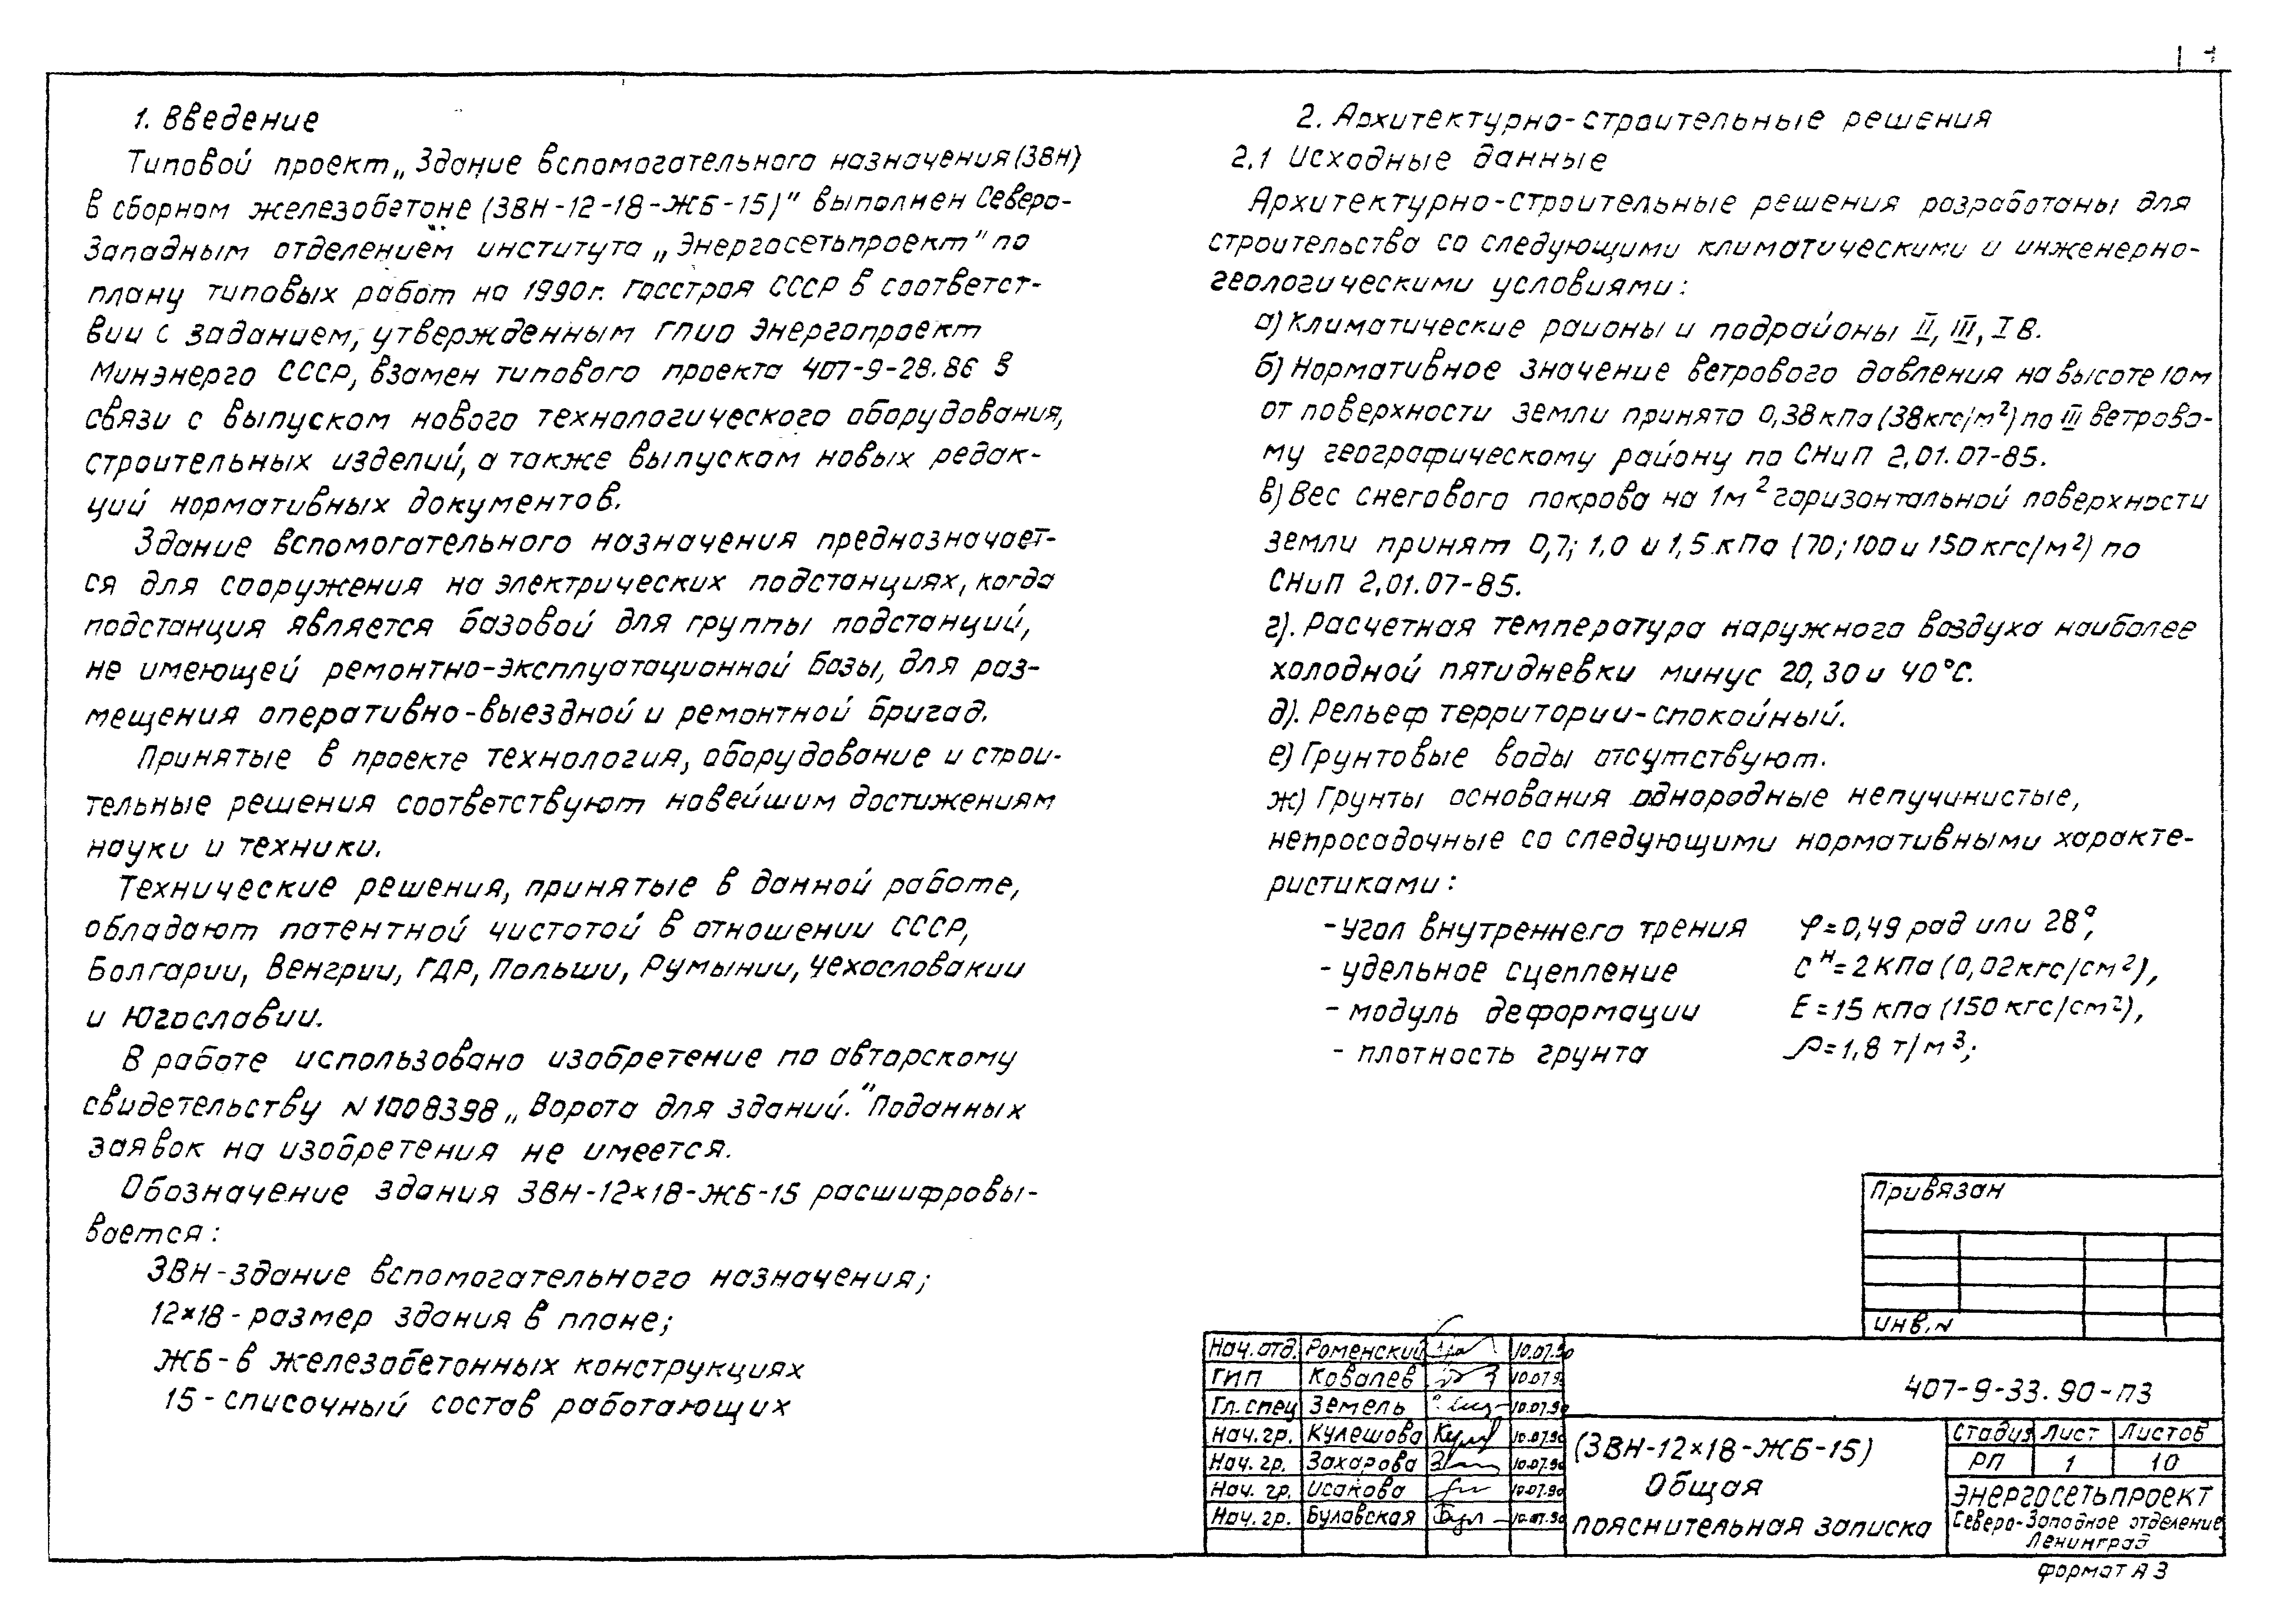 1. Введение
Типовой проект „Здание вспомогательного назначения (ЗВН)
в сборном железобетоне (ЗВН-12-18-ЖБ-15)" выполнен Северо-
Западным отделением института „Энергосетьпроект" по
плану типовых работ на 1990г. Госстроя СССР в соответст-
вии с заданием, утвержденным ГПИО Энергопроект
Минэнерго СССР, взамен типового проекта 407-9-28.86 в
связи с выпуском нового технологического оборудования,
строительных изделий, а также выпуском новых редак-
ций нормативных документов.
Здание вспомогательного назначения предназначает-
ся для сооружения на электрических подстанциях, когда
подстанция является базовой для группы подстанций,
не имеющей ремонтно-эксплуатационной базы, для раз-
мещения оперативно-выездной и ремонтной бригад.
Принятые в проекте технология, оборудование и строи-
тельные решения соответствуют новейшим достижениям
науки и техники.
Технические решения, принятые в данной работе,
обладают патентной чистотой в отношении СССР,
Болгарии, Венгрии, ГДР, Польши, Румынии, Чехословакии
и Югославии.
В работе использовано изобретение по авторскому
свидетельству N 1008398 „Ворота для зданий." Поданных
заявок на изобретения не имеется.
Обозначение здания ЗВН-12×18-ЖБ-15 расшифровы-
вается:
ЗВН-здание вспомогательного назначения;
12×18 - размер здания в плане;
ЖБ-в железобетонных конструкциях
15 - списочный состав работающих
2. Архитектурно-строительные решения
2.1 Исходные данные
Архитектурно-строительные решения разработаны для
строительства со следующими климатическими и инженерно-
геологическими условиями:
а) Климатические раионы и подрайоны II, III, I В.
б) Нормативное значение ветрового давления на высоте 10м
от поверхности земли принято 0,38 кПа (38кгс/м²) по III ветрово-
му географическому району по СНиП 2.01.07-85.
в) Вес снегового покрова на 1м² горизонтальной поверхности
земли принят 0,7; 1,0 и 1,5 кПа (70; 100 и 150 кгс/м²) по
СНиП 2.01.07-85.
г). Расчетная температура наружного воздуха наиболее
холодной пятидневки минус 20, 30 и 40°С.
д). Рельеф территории-спокойный.
е) Грунтовые воды отсутствуют.
ж) Грунты основания однородные непучинистые,
непросадочные со следующими нормативными характе-
ристиками:
- угол внутреннего трения φ=0,49 рад или 28°,
- удельное сцепление Cᴴ=2 кПа (0,02кгс/см²),
- модуль деформации E=15 кПа (150 кгс/см²),
- плотность грунта ρ=1,8 т/м³;
Привязан
Инв. N
Нач. отд. Роменский 10.07.90
ГИП Ковалев 10.07.9
Гл. спец Земель 10.07.90
Нач. гр. Кулешова 10.07.90
Нач. гр. Захарова 10.07.90
Нач. гр. Исакова 10.07.90
Нач. гр. Булавская 10.07.90
407-9-33.90-ПЗ
(ЗВН-12×18-ЖБ-15)
Общая
пояснительная записка
Стадия Лист Листов
РП 1 10
Энергосетьпроект
Северо-Западное отделение
Ленинград
Формат А3